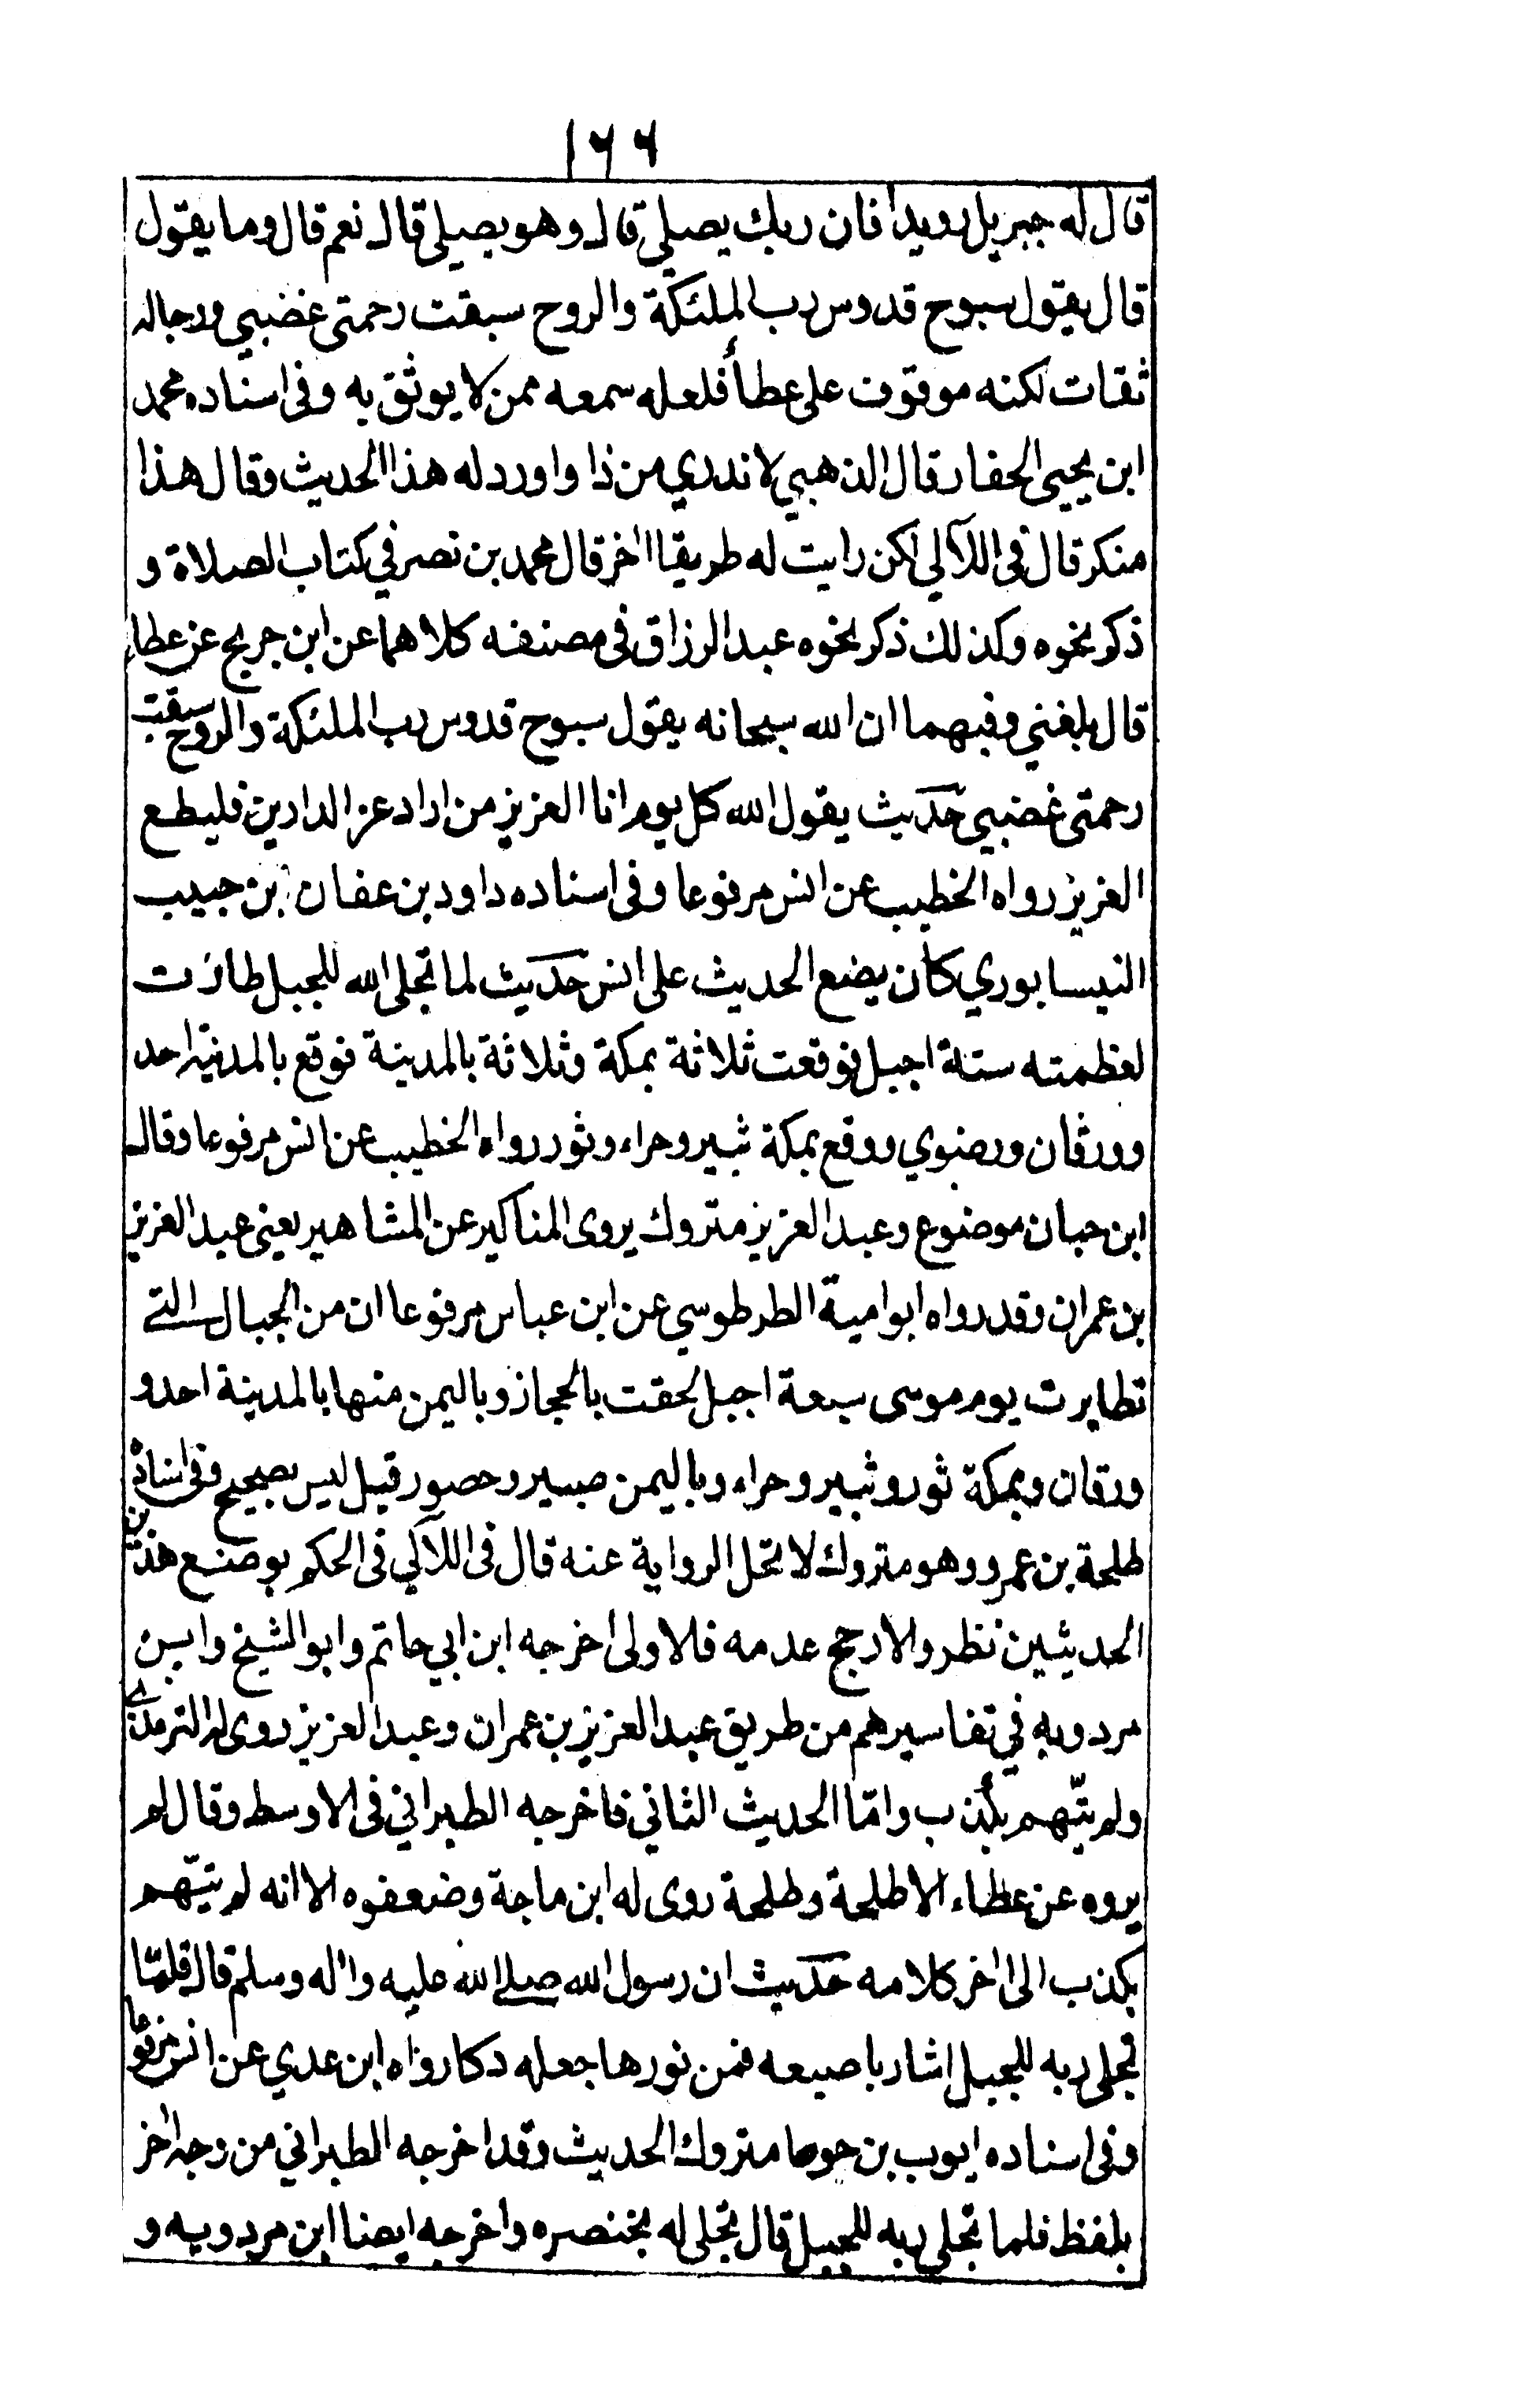 ١٦٦
قال له جبريل رويدا فان ربك يصلي قال وهو يصلي قال نعم قال وما يقول
قال يقول سبوح قدوس رب الملئكة والروح سبقت رحمتى غضبي ورجاله
ثقات لكنه موقوف على عطأ فلعله سمعه ممن لا يوثق به وفى اسناده محمد
ابن يحيى الحفار قال الذهبي لا ندري من ذا واورد له هذا الحديث وقال هذا
منكر قال فى اللآلي لكن رايت له طريقا اخر قال محمد بن نصر في كتاب الصلاة و
ذكر نحوه وكذلك ذكر نحوه عبد الرزاق فى مصنفه كلاهما عن ابن جريج عن عطاء
قال بلغني وفيهما ان الله سبحانه يقول سبوح قدوس رب الملئكة والروح سبقت
رحمتى غضبي حديث يقول الله كل يوم انا العزيز من اراد عز الدارين فليطع
العزيز رواه الخطيب عن انس مرفوعا وفى اسناده داود بن عفان بن حبيب
النيسابوري كان يضع الحديث على انس حديث لما تجلى الله للجبل طارت
لعظمته ستة اجبل فوقعت ثلاثة بمكة وثلاثة بالمدينة فوقع بالمدينة احد
وورقان ورضوي ووقع بمكة ثبير وحراء وثور رواه الخطيب عن انس مرفوعا وقال
ابن حبان موضوع وعبد العزيز متروك يروى المناكير عن المشاهير يعنى عبد العزيز
بن عمران وقد رواه ابو امية الطرطوسي عن ابن عباس مرفوعا ان من الجبال التے
تطايرت يوم موسى سبعة اجبل لحقت بالحجاز وباليمن منها بالمدينة احد و
ورقان وبمكة ثور وثبير وحراء وباليمن صبير وحصور قيل ليس بصحيح وفى اسناده
طلحة بن عمرو وهو متروك لا تحل الرواية عنه قال فى اللآلي فى الحكم بوضع هذين
الحديثين نظر والارجح عدمه فلاولى اخرجه ابن ابي حاتم وابو الشيخ وابن
مردويه في تفاسيرهم من طريق عبد العزيز بن عمران وعبد العزيز روى له الترمذي
ولم يتّهم بكذب وامّا الحديث الثاني فاخرجه الطبراني فى الاوسط وقال لم
يروه عن عطاء الا طلحة وطلحة روى له ابن ماجة وضعفوه الا انه لم يتّهم
بكذب الى اخر كلامه حديث ان رسول الله صلے الله عليه واله وسلم قال فلمّا
تجلى ربه للجبل اشار باصبعه فمن نورها جعله دكا رواه ابن عدي عن انس مرفوعا
وفى اسناده ايوب بن حوط متروك الحديث وقد اخرجه الطبراني من وجه اخر
بلفظ فلما تجلى ربه للجبل قال تجلى له بخنصره واخرجه ايضا ابن مردويه و